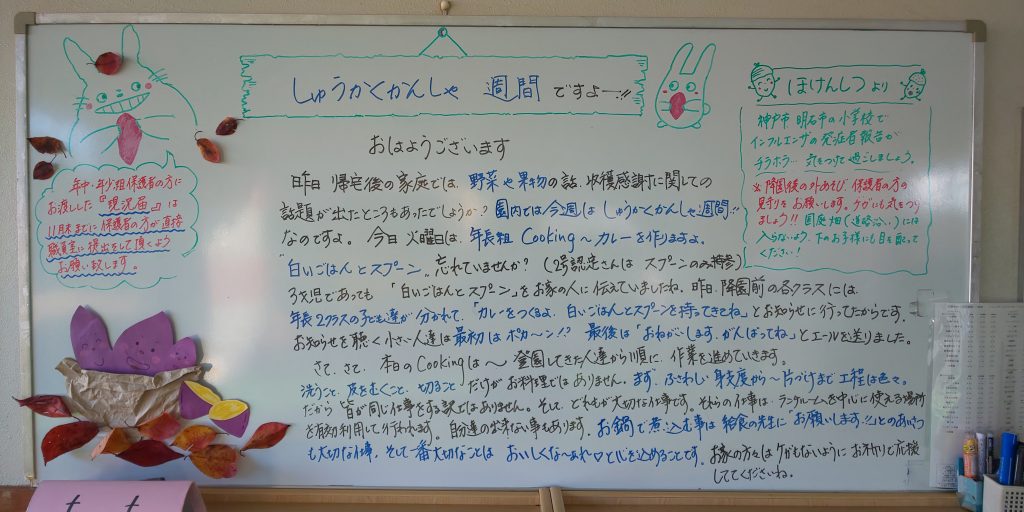 しゅうかくかんしゃ 週間ですよー!!
おはようございます
昨日 帰宅後の家庭では、野菜や果物の話、収穫感謝に関しての
話題が出たところもあったでしょうか? 園内では今週は しゅうかくかんしゃ週間!!
なのですよ。 今日 火曜日は、年長組 Cooking～カレーを作りますよ。
"白いごはんとスプーン"忘れていませんか? (2号認定さんは スプーンのみ持参)
3才児であっても「白いごはんとスプーン」をお家の人に伝えていましたね。昨日、降園前の各クラスには、
年長2クラスの子ども達が分かれて、「カレーをつくるよ、白いごはんとスプーンを持ってきてね」とお知らせに行ってたからです。
お知らせを聴く小さい人達は最初はポカ～ン!? 最後は「おねがいします。がんばってね」とエールを送りました。
さて、さて、本日のCookingは～ 登園してきた人達から順に、作業を進めていきます。
洗うこと、皮をむくこと、切ること だけがお料理ではありません。まず、ふさわしい身支度から～片づけまで工程は色々。
だから 皆が同じ仕事をする訳ではありません。そして、どれもが大切な仕事です。それらの仕事は、ランチルームを中心に使える場所
を有効利用して行われます。自分達の出来ない事もあります。お鍋で煮込む事は 給食の先生に「お願いします。」とのあいさつ
も大切な仕事。そして一番大切なことは おいしくな～あれ♡と心を込めることです。お家の方々は ケガもないように お祈りで応援
しててくださいね。
年中・年少組保護者の方に
お渡しした『現況届』は
11月末までに保護者の方が直接
職員室に提出をして頂くよう
お願い致します。
ほけんしつより
神戸市 明石市の小学校で
インフルエンザの発症者報告が
チラホラ… 気をつけて過ごしましょう。
※降園後の外あそび、保護者の方の
見守りをお願いします。ケガにも気をつけ
ましょう!! 園庭畑(道路沿い)には
入らないよう、下のお子様にも目を配って
ください!